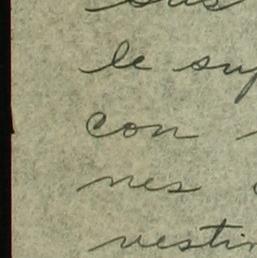 sus
le sup
con
nes
vestin